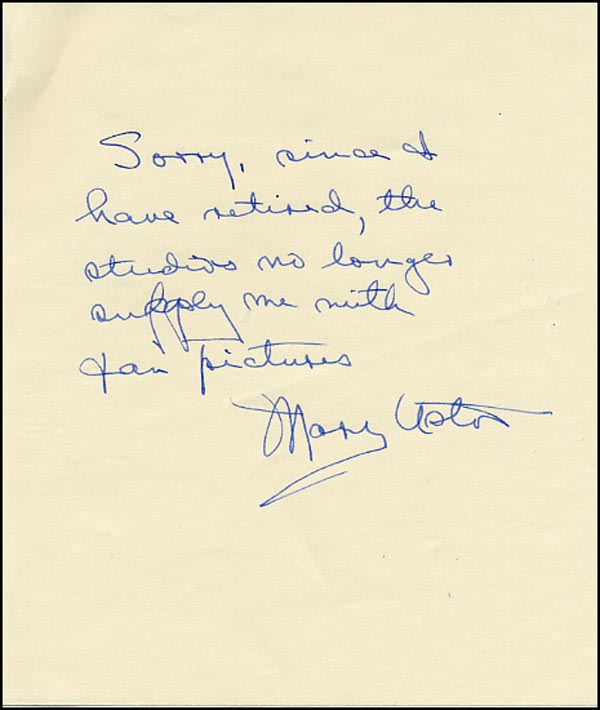 Sorry, since I
have retired, the
studios no longer
supply me with
fan pictures
Mary Astor